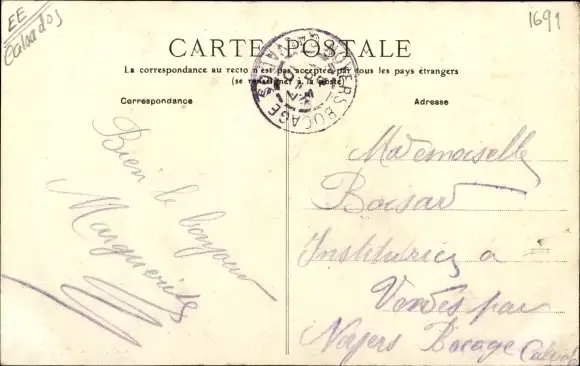 EE
Calvados
1691
CARTE POSTALE
La correspondance au recto n'est pas acceptée par tous les pays étrangers
(se renseigner à la poste)
Correspondance
Adresse
NOYERS-BOCAGE
Bien le bonjour
Marguerite
Mademoiselle
Boisard
Institutrice a
Vendes par
Noyers Bocage
Calvados